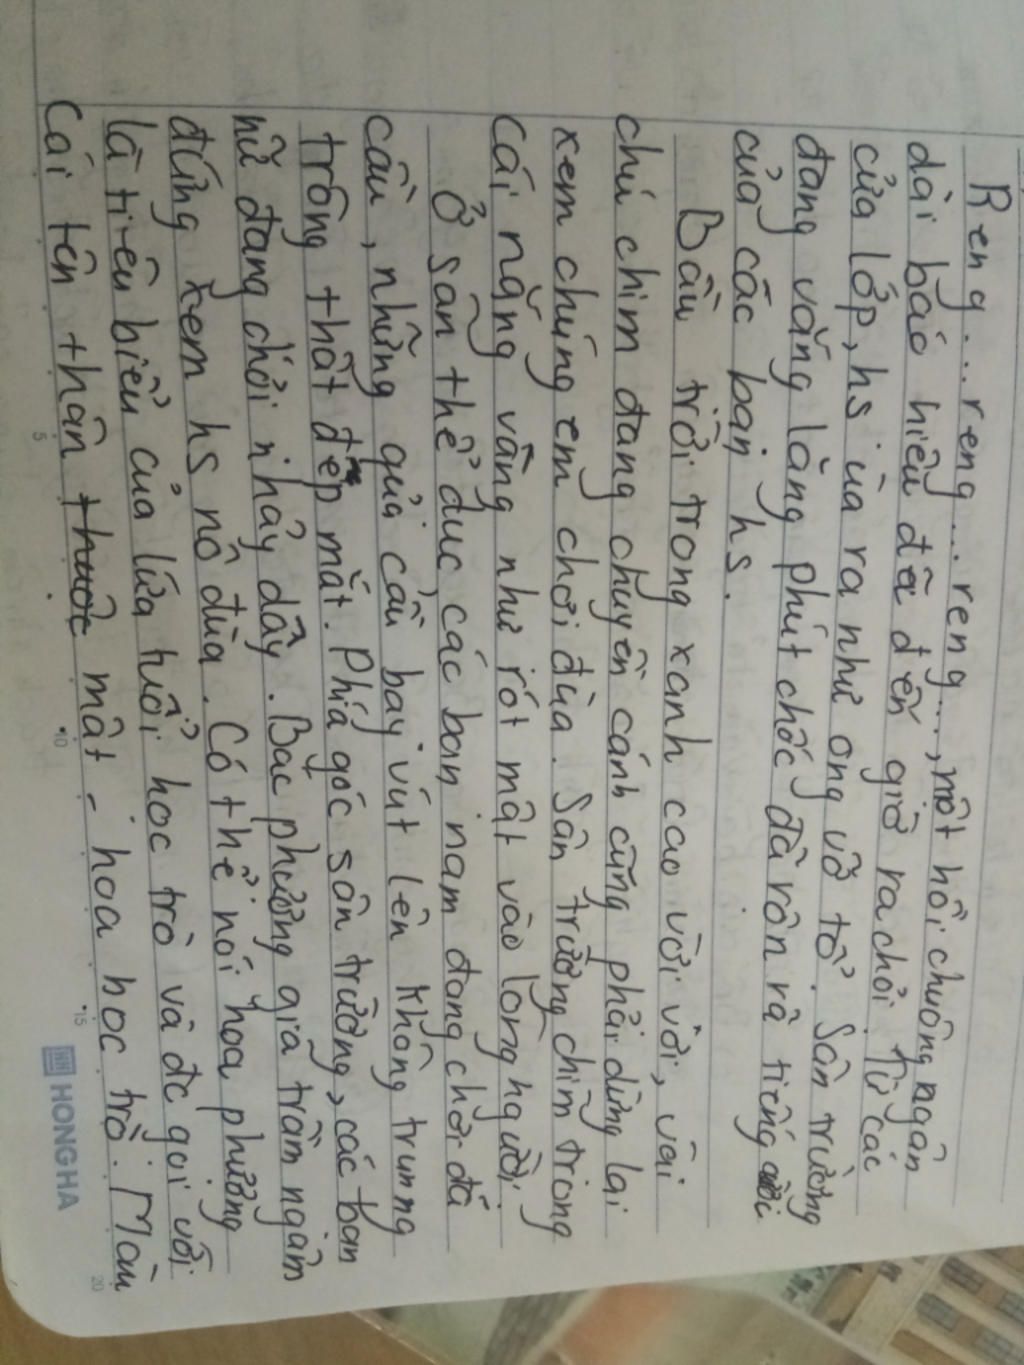 Reng... reng... reng..., một hồi chuông ngân
dài báo hiệu đã đến giờ ra chơi. Từ các
cửa lớp, hs ùa ra như ong vỡ tổ. Sân trường
đang vắng lặng phút chốc đã rộn rã tiếng cười
của các bạn hs.
Bầu trời trong xanh cao vời vời, vài
chú chim đang chuyền cánh cũng phải dừng lại
xem chúng em chơi đùa. Sân trường chìm trong
cái nắng vàng như rót mật vào lòng người.
Ở sân thể dục, các bạn nam đang chơi đá
cầu, những quả cầu bay vút lên không trunng
trông thật đẹp mắt. Phía góc sân trường, các bạn
nữ đang chơi nhảy dây. Bác phượng già trầm ngâm
đứng xem hs nô đùa. Có thể nói hoa phượng
là tiêu biểu của lứa tuổi học trò và đc gọi với
cái tên thân thuộc mật - hoa học trò. Màu
5
10
15
20
HONG HA